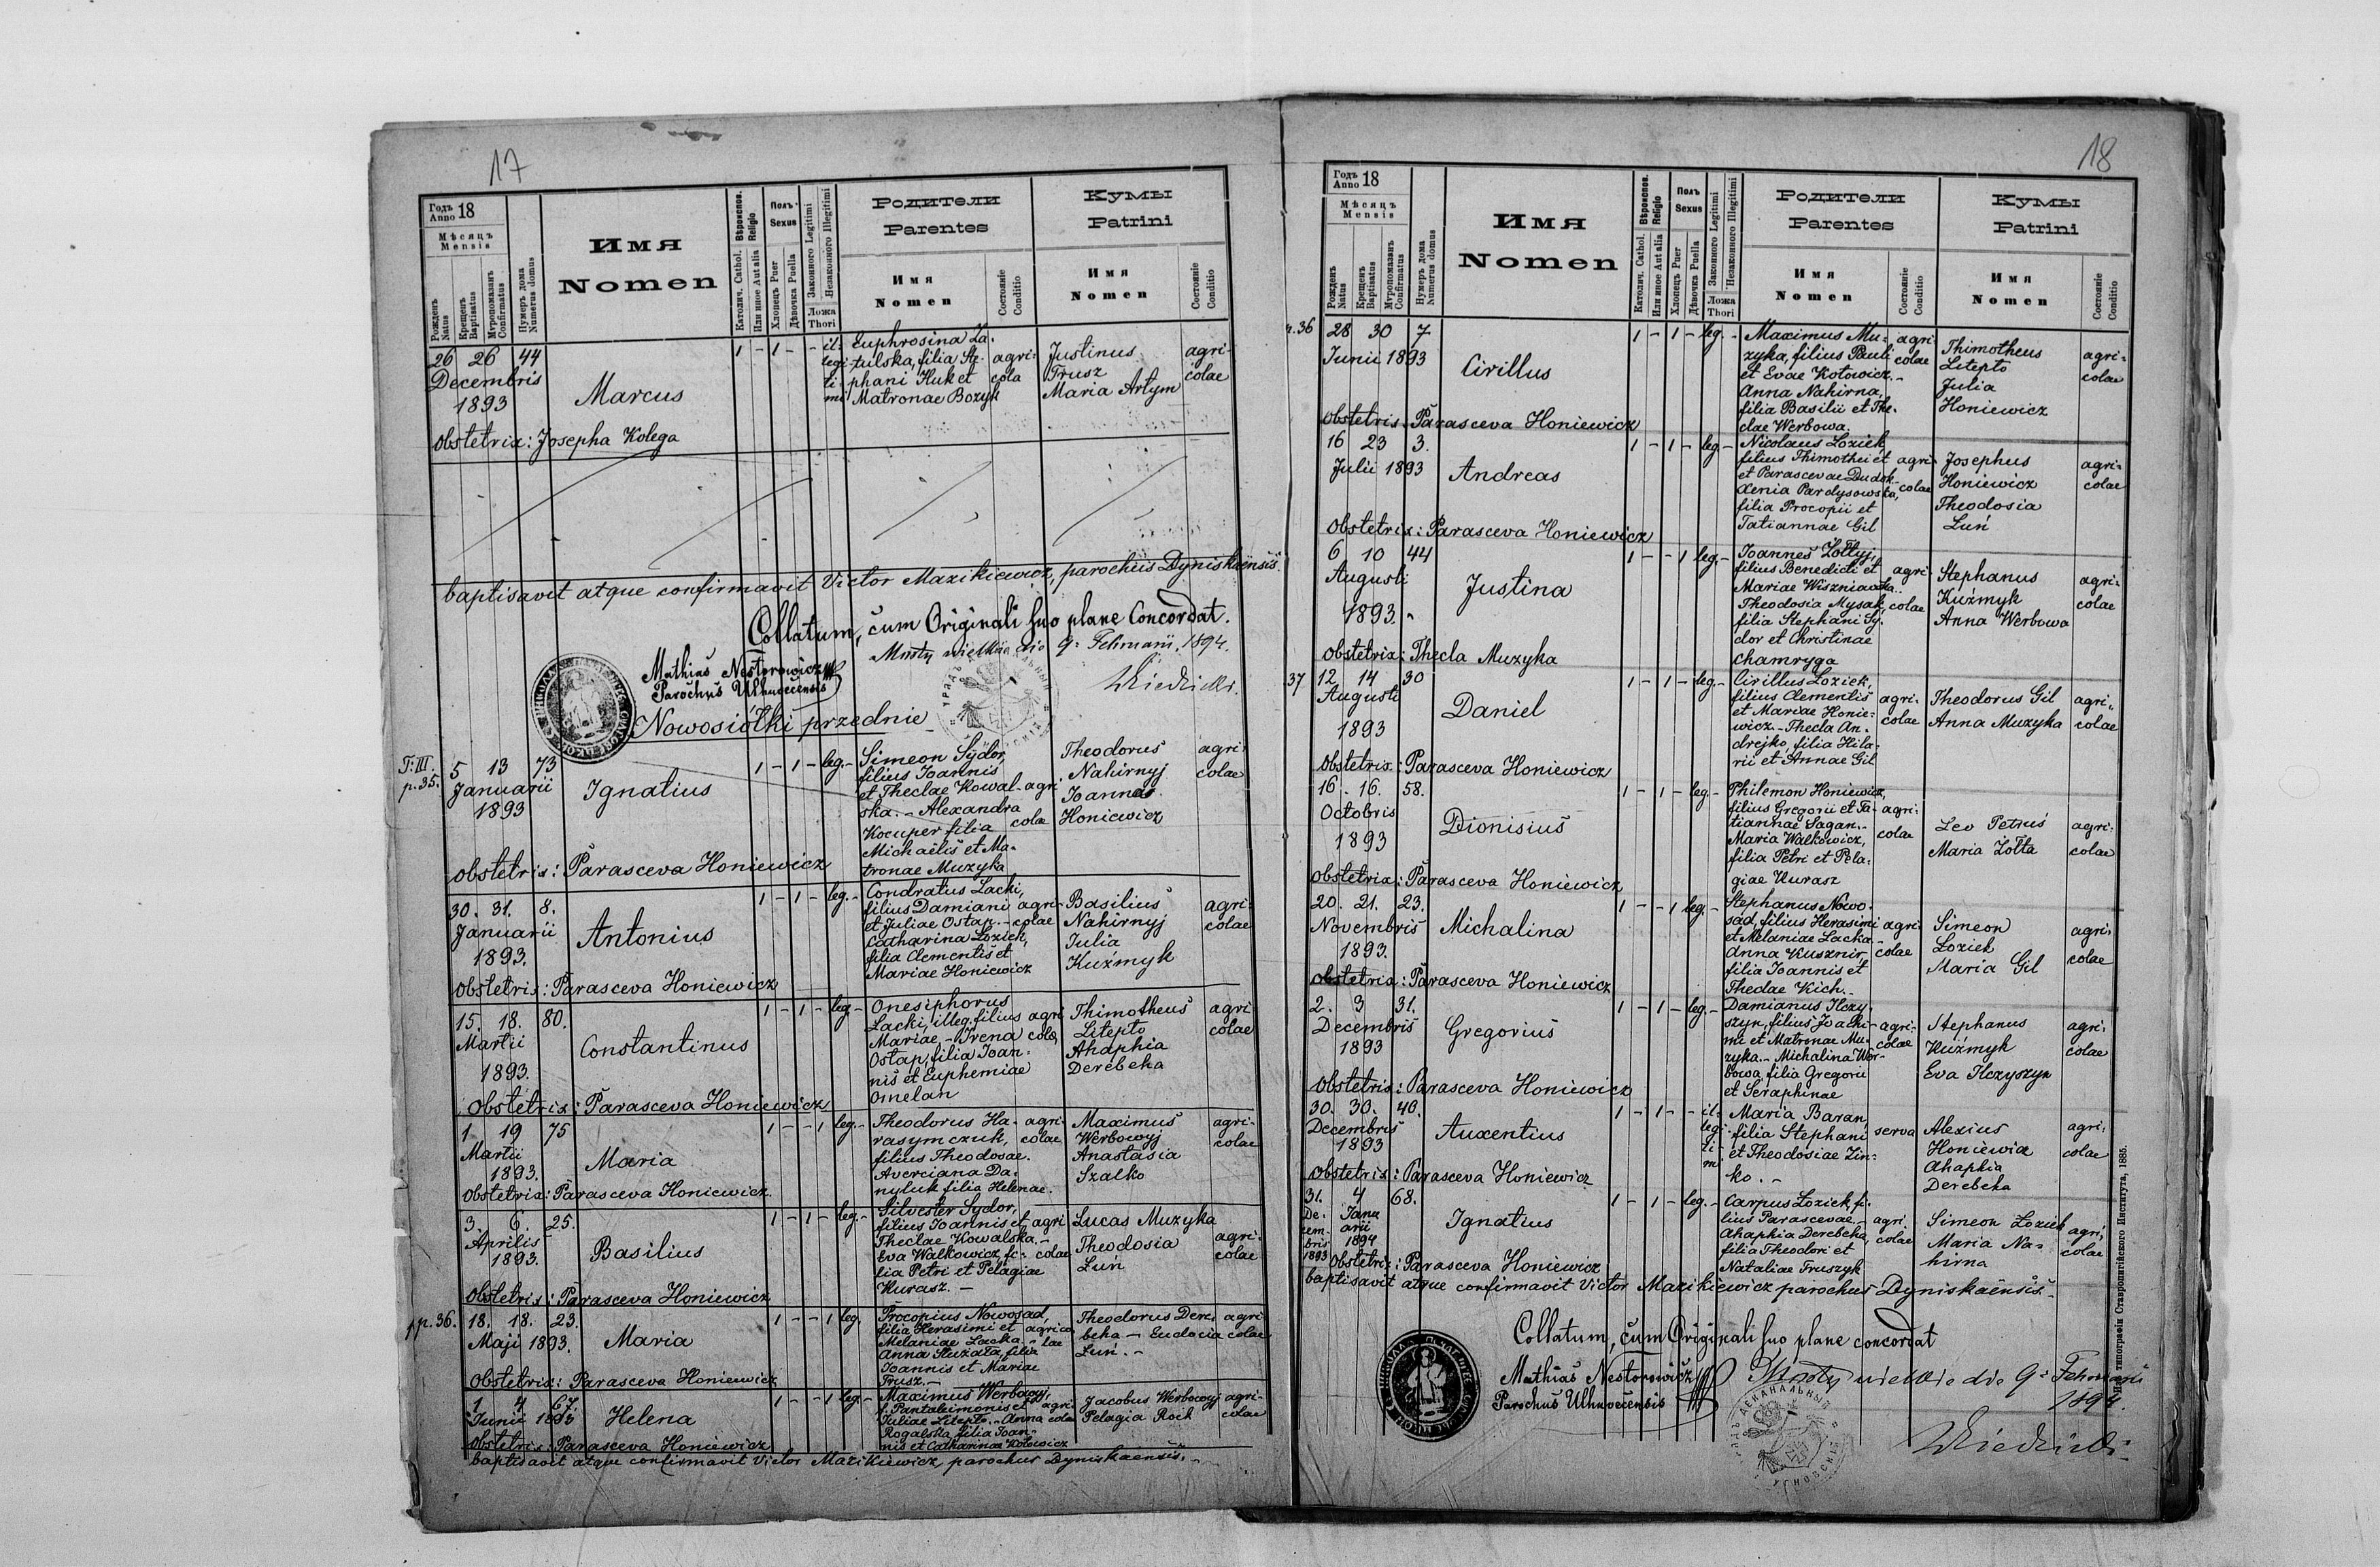 17
Годъ Anno 18
Мѣсяцъ
Mensis
Рожденъ Natus
Крещенъ Baptisatus
Мѵропомазанъ Confirmatus
Нумеръ дома Numerus domus
Имя
Nomen
Вѣроисповѣд. Religio
Католич. Cathol.
Или иное Aut alia
Полъ Sexus
Хлопецъ Puer
Дѣвочка Puella
Законного Legitimi
Незаконного Illegitimi
Ложа Thori
Родители
Parentes
Имя
Nomen
Состояніе Conditio
Кумы
Patrini
Имя
Nomen
Состояніе Conditio
26 26 44
Decembris
1893
Marcus
1 - 1 - - il-
legi-
ti-
mi
Euphrosina La-
tulska, filia Ste-
phani Huk et
Matronae Bozyk
agri-
cola
Justinus
Trusz
Maria Artym
agri-
colae
obstetrix: Josepha Kolega
baptisavit atque confirmavit Victor Mazikiewicz, parochus Dyniskaënsis.
Collatum, cum Originali suo plane Concordat.
Mosty wielkie die 9. Februarii 1894.
Mathias Nestorowicz
Parochus Uhnovecensis
Nowosiółki przednie
T. III.
p. 35.
5 13 73
Januarii
1893
Ignatius
1 - 1 - leg. -
Simeon Sydor,
filius Joannis
et Theclae Kowal-
ska. - Alexandra
Kocuper filia
Michaëlis et Ma-
tronae Muzyka
agri
colae
Theodorus
Nahirnyj
Joannes
Honiewicz
agri
colae
obstetrix: Parasceva Honiewicz
30. 31. 8.
Januarii
1893.
Antonius
1 - 1 - leg. -
Condratus Lacki,
filius Damiani
et Juliae Ostap. -
Catharina Łoziek,
filia Clementis et
Mariae Honiewicz
agri-
colae
Basilius
Nahirnyj
Julia
Kuźmyk
agri-
colae
obstetrix: Parasceva Honiewicz
15. 18. 80.
Martii
1893.
Constantinus
1 - 1 - leg. -
Onesiphorus
Lacki, illeg. filius
Mariae, - Irena
Ostap, filia Joan-
nis et Euphemiae
Omelan
agri
colae
Thimotheus
Litepto
Ahaphia
Derebeka
agri
colae
obstetrix: Parasceva Honiewicz
1 19 75
Martii
1893.
Maria
1 - - 1 leg. -
Theodorus Ha-
rasymczuk,
filius Theodosae.
Averciana Da-
nyluk filia Helenae.
agri-
colae
Maximus
Werbowyj
Anastasia
Szalko
agri-
colae
obstetrix: Parasceva Honiewicz.
3. 6. 25.
Aprilis
1893.
Basilius
1 - 1 - leg. -
Silvester Sydor,
filius Joannis et
Theclae Kowalska. -
Eva Walkowicz, fi-
lia Petri et Pelagiae
Kurasz. -
agri
colae
Lucas Muzyka
Theodosia
Łuń
agri-
colae
obstetrix: Parasceva Honiewicz
pp. 36.
18. 18. 23.
Maji 1893.
Maria
1 - - 1 leg.
Procopius Nowosad,
filia Herasimi et
Melaniae Lacka. -
Anna Służała, filia
Joannis et Mariae
Trusz. -
agrico
lae
Theodorus Dere-
beka - Eudocia
Łuń. -
agri
colae
obstetrix: Parasceva Honiewicz
1 4 67
Junii 1893
Helena
1 - - 1 leg. -
Maximus Werbowyj,
f. Pantaleimonis et
Juliae Litepto. - Anna
Rogalska, filia Joan-
nis et Catharinae Kotowicz
agri-
colae
Jacobus Werbowyj
Pelagia Roik
agri-
colae
obstetrix: Parasceva Honiewicz
baptisavit atque confirmavit Victor Mazikiewicz, parochus Dyniskaënsis. -
18
Годъ Anno 18
Мѣсяцъ
Mensis
Рожденъ Natus
Крещенъ Baptisatus
Мѵропомазанъ Confirmatus
Нумеръ дома Numerus domus
Имя
Nomen
Вѣроисповѣд. Religio
Католич. Cathol.
Или иное Aut alia
Полъ Sexus
Хлопецъ Puer
Дѣвочка Puella
Законного Legitimi
Незаконного Illegitimi
Ложа Thori
Родители
Parentes
Имя
Nomen
Состояніе Conditio
Кумы
Patrini
Имя
Nomen
Состояніе Conditio
p. 36
28 30 7
Junii 1893
Cirillus
1 - 1 - leg. -
Maximus Mu-
zyka, filius Pauli
et Evae Kotowicz. -
Anna Nahirna,
filia Basilii et The-
clae Werbowa.
agri-
colae
Thimotheus
Litepto
Julia
Honiewicz
agri-
colae
obstetrix: Parasceva Honiewicz
16 23 3.
Julii 1893
Andreas
1 - 1 - leg. -
Nicolaus Łoziek,
filius Thimothei et
et Parascevae Dudok.
Xenia Pardysowska,
filia Procopii et
Tatiannae Gil
agri-
colae
Josephus
Honiewicz
Theodosia
Łuń
agri-
colae
obstetrix: Parasceva Honiewicz
6 10 44
Augusti
1893.
Justina
1 - - 1 leg. -
Joannes Żołtyj,
filius Benedicti et
Mariae Wiszniawska.
Theodosia Mysak,
filia Stephani Sy-
dor et Christinae
Chamryga
agri
colae
Stephanus
Kuźmyk
Anna Werbowa
agri-
colae
obstetrix: Thecla Muzyka
37
12 14 30
Augusti
1893
Daniel
1 - 1 - leg. -
Cirillus Łoziek,
filius Clementis
et Mariae Honie-
wicz. - Thecla An-
drejko, filia Hila-
rii et Annae Gil
agri-
colae
Theodorus Gil
Anna Muzyka
agri-
colae
obstetrix: Parasceva Honiewicz
16. 16. 58.
Octobris
1893
Dionisius
1 - 1 - leg. -
Philemon Honiewicz,
filius Gregorii et Ta-
tiannae Sagan. -
Maria Walkowicz,
filia Petri et Pela-
giae Kurasz
agri-
colae
Leo Petruś
Maria Żołta
agri-
colae
obstetrix: Parasceva Honiewicz
20. 21. 23.
Novembris
1893.
Michalina
1 - - 1 leg. -
Stephanus Nowo-
sad, filius Herasimi
et Melaniae Lacka. -
Anna Kusznir,
filia Joannis et
Theclae Kich. -
agri-
colae
Simeon
Łoziek
Maria Gil
agri-
colae
obstetrix: Parasceva Honiewicz
2. 3 31.
Decembris
1893
Gregorius
1 - 1 - leg. -
Damianus Ilczy-
szyn, filius Joachi-
mi et Matronae Mu-
zyka. - Michalina Wer-
bowa, filia Gregorii
et Seraphinae
agri-
colae
Stephanus
Kuźmyk
Eva Ilczyszyn
agri-
colae
obstetrix: Parasceva Honiewicz
30. 30. 40.
Decembris
1893
Auxentius
1 - 1 - - il-
legi-
ti-
mi
Maria Baran,
filia Stephani
et Theodosiae Zin-
ko. -
serva
Alexius
Honiewicz
Ahaphia
Derebeka
agri-
colae
obstetrix: Parasceva Honiewicz
31. 4 68.
De- Janu
cem- arii
bris 1894
1893
Ignatius
1 - 1 - leg. -
Carpus Łoziek, fi-
lius Parascevae. -
Ahaphia Derebeka,
filia Theodori et
Nataliae Truszyk
agri-
colae
Simeon Łoziek
Maria Na-
hirna
agri-
colae
obstetrix: Parasceva Honiewicz
baptisavit atque confirmavit Victor Mazikiewicz parochus Dyniskaënsis. -
Collatum, cum Originali suo plane concordat
Mathias Nestorowicz
Parochus Uhnovecensis
Mosty wielkie die 9. Februarii
1894.
Изъ типографіи Ставропигійского Института, 1885.